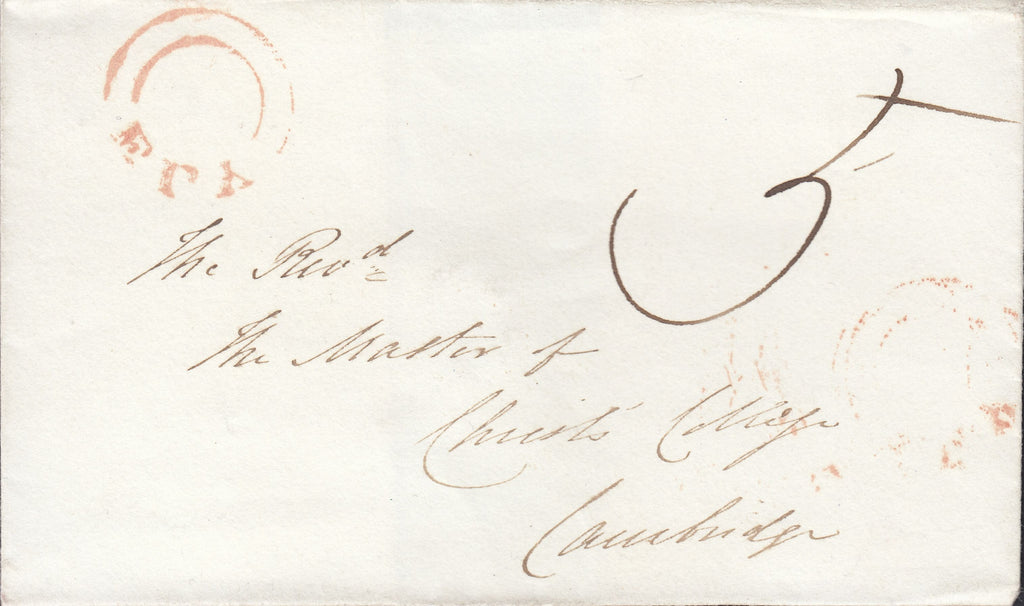 5
The Revd
The Master of
Christ's College
Cambridge
ELY